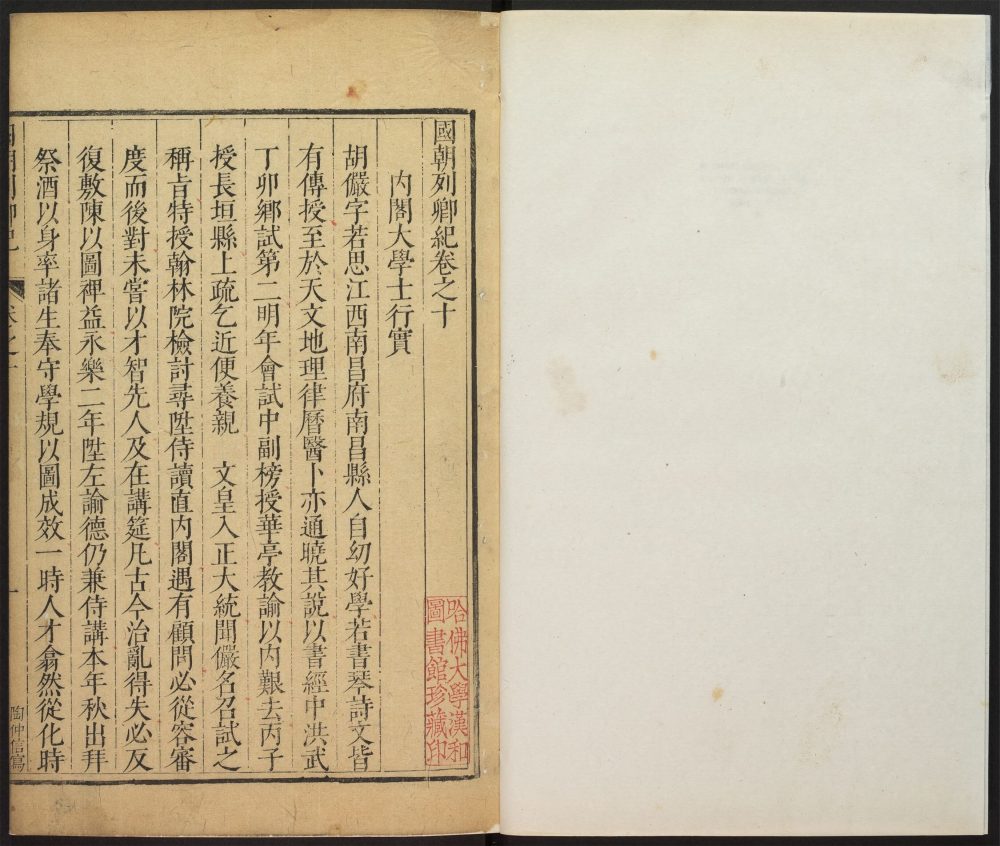 國朝列卿紀卷之十
內閣大學士行實
胡儼字若思江西南昌府南昌縣人自幼好學若書琴詩文皆
有傳授至於天文地理律曆醫卜亦通曉其說以書經中洪武
丁卯鄉試第二明年會試中副榜授華亭教諭以內艱去丙子
授長垣縣上疏乞近便養親　文皇入正大統聞儼名召試之
稱旨特授翰林院檢討尋陞侍讀直內閣遇有顧問必從容審
度而後對未嘗以才智先人及在講筵凡古今治亂得失必反
復敷陳以圖禆益永樂二年陞左諭德仍兼侍講本年秋出拜
祭酒以身率諸生奉守學規以圖成效一時人才翕然從化時
國朝列卿紀
卷之十
一
陶仲信寫
哈佛大學漢和
圖書館珍藏印